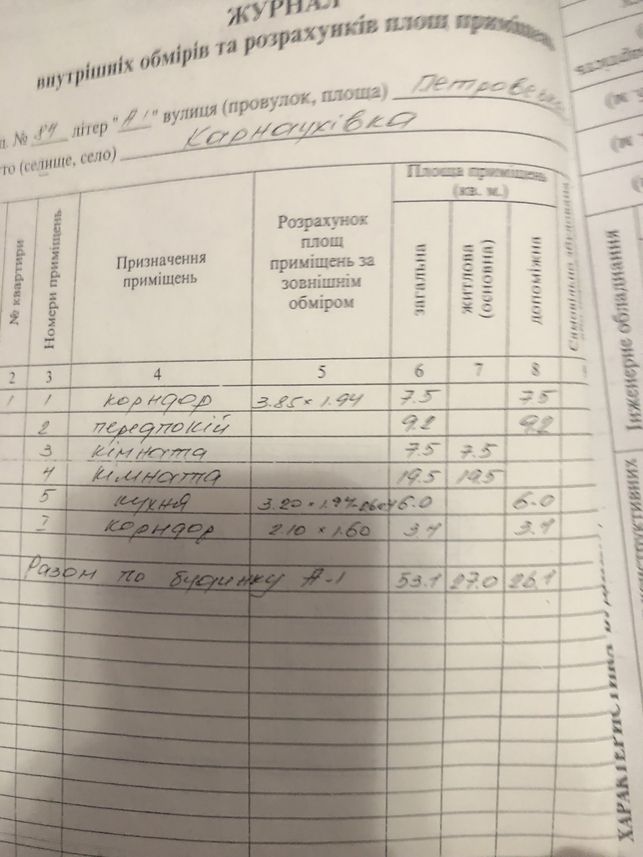 ЖУРНАЛ
внутрішніх обмірів та розрахунків площ приміщень
№ 84 літер "А¹" вулиця (провулок, площа) Петровська
(селище, село) Карнаухівка
№ квартири
Номери приміщень
Призначення приміщень
Розрахунок площ приміщень за зовнішнім обміром
Площа приміщень (кв. м.)
загальна
житлова (основна)
допоміжна
2 3 4 5 6 7 8
1 1 коридор 3.85 × 1.94 7.5 7.5
2 передпокій 9.2 9.2
3 кімната 7.5 7.5
4 кімната 19.5 19.5
5 кухня 3.20 × 1.97 6.0 6.0
7 коридор 2.10 × 1.60 3.4 3.4
Разом по будинку А-1 53.1 27.0 26.1
Інженерне обладнання
конструктивних
ХАРАКТЕРИСТИКА